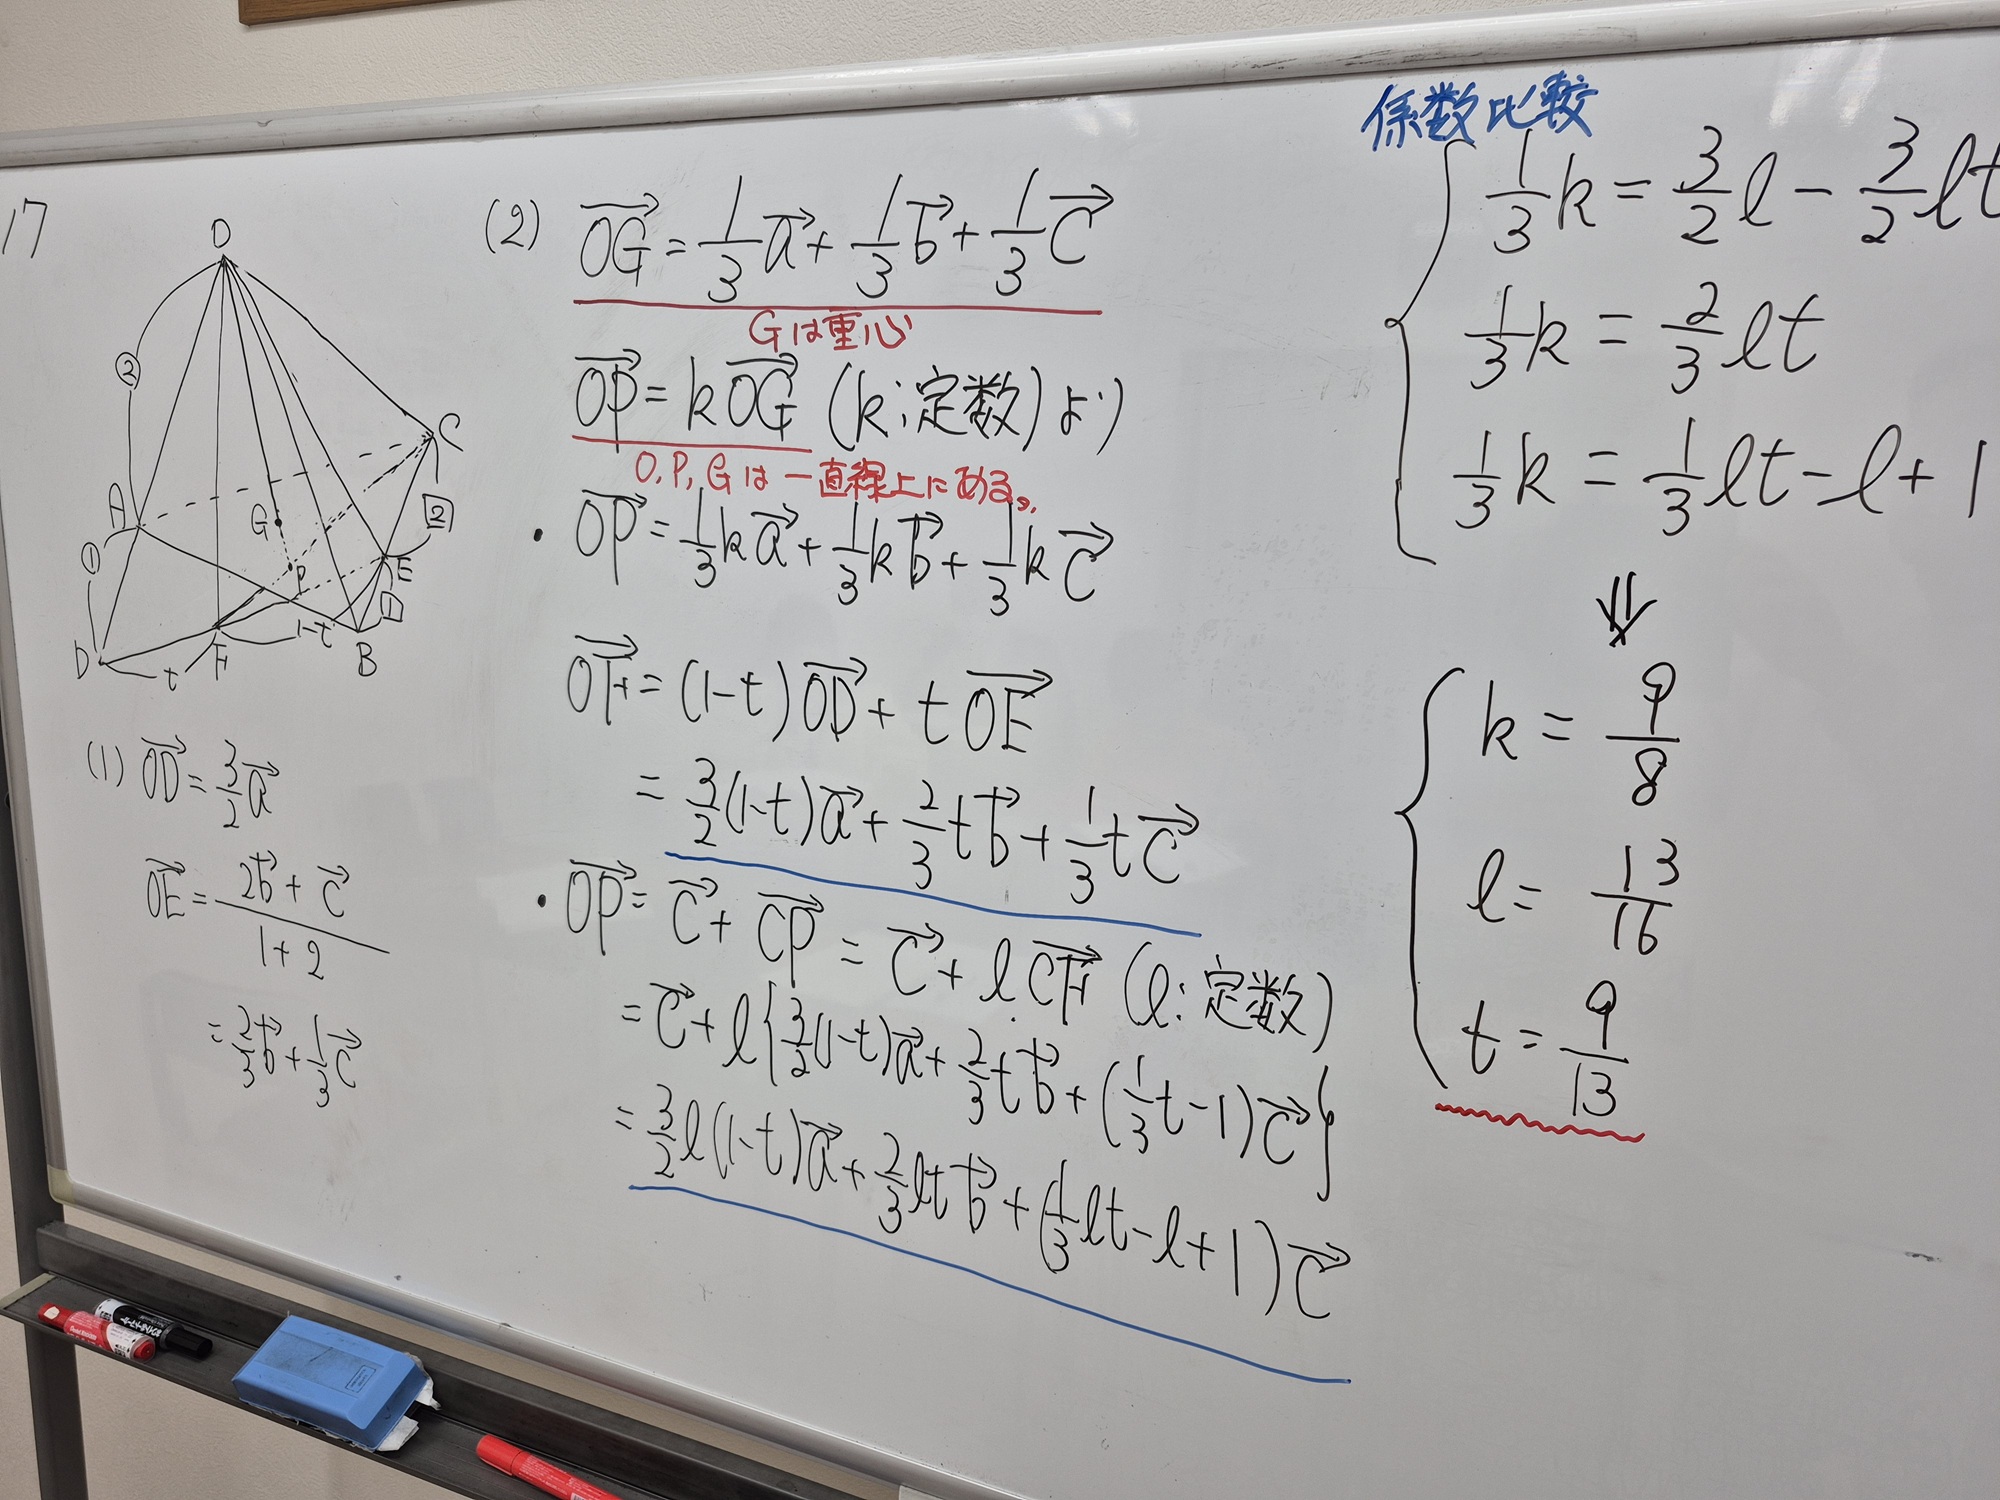 17
O
②
C
A
G
②
①
P
E
①
D
t
F
1-t
B
(1) OD→ = 3/2 a→
OE→ = (2b→ + c→)/(1+2)
= 2/3 b→ + 1/3 c→
(2) OG→ = 1/3 a→ + 1/3 b→ + 1/3 c→
Gは重心
OP→ = k OG→ (k:定数) より
O, P, Gは一直線上にある。
・OP→ = 1/3 k a→ + 1/3 k b→ + 1/3 k c→
OF→ = (1-t) OD→ + t OE→
= 3/2 (1-t) a→ + 2/3 t b→ + 1/3 t c→
・OP→ = c→ + CP→ = c→ + l CF→ (l:定数)
= c→ + l{3/2 (1-t) a→ + 2/3 t b→ + (1/3 t - 1) c→}
= 3/2 l(1-t) a→ + 2/3 lt b→ + (1/3 lt - l + 1) c→
係数比較
1/3 k = 3/2 l - 3/2 lt
1/3 k = 2/3 lt
1/3 k = 1/3 lt - l + 1
⇓
k = 9/8
l = 13/16
t = 9/13